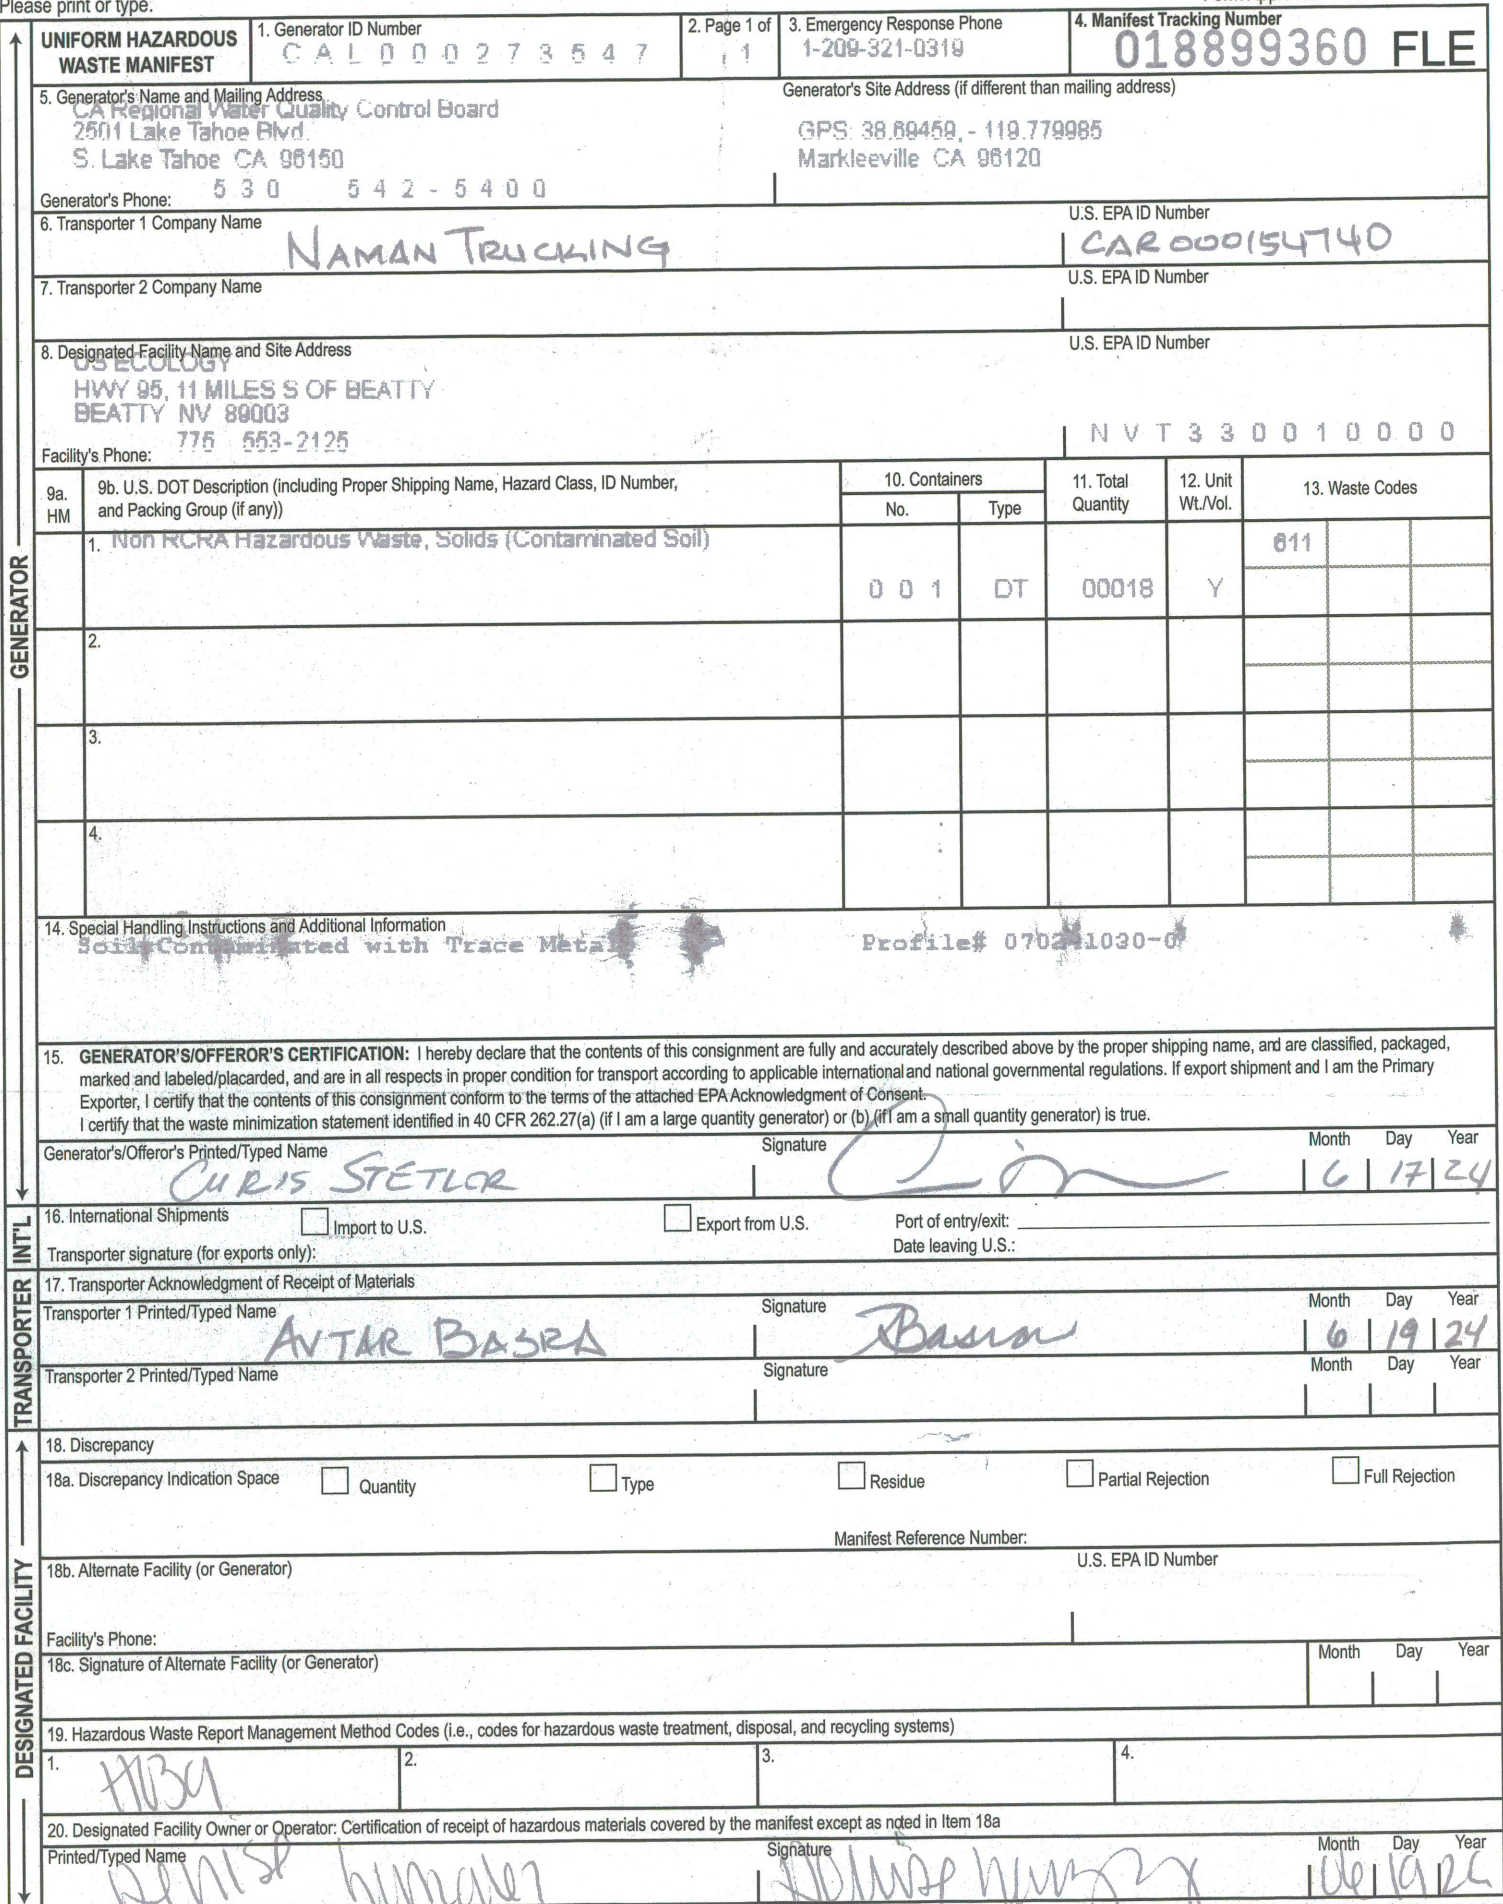 Please print or type.
UNIFORM HAZARDOUS WASTE MANIFEST
1. Generator ID Number
CAL000273547
2. Page 1 of
1
3. Emergency Response Phone
1-209-321-0319
4. Manifest Tracking Number
018899360 FLE
5. Generator's Name and Mailing Address
CA Regional Water Quality Control Board
2501 Lake Tahoe Blvd.
S. Lake Tahoe CA 96150
Generator's Phone: 530 542-5400
Generator's Site Address (if different than mailing address)
GPS: 38.69459, - 119.779985
Markleeville CA 96120
6. Transporter 1 Company Name
NAMAN TRUCKING
U.S. EPA ID Number
CAR000154740
7. Transporter 2 Company Name
U.S. EPA ID Number
8. Designated Facility Name and Site Address
US ECOLOGY
HWY 95, 11 MILES S OF BEATTY
BEATTY NV 89003
Facility's Phone: 775 553-2125
U.S. EPA ID Number
NVT330010000
9a. HM
9b. U.S. DOT Description (including Proper Shipping Name, Hazard Class, ID Number, and Packing Group (if any))
10. Containers
No.
Type
11. Total Quantity
12. Unit Wt./Vol.
13. Waste Codes
1. Non RCRA Hazardous Waste, Solids (Contaminated Soil)
001
DT
00018
Y
611
2.
3.
4.
14. Special Handling Instructions and Additional Information
Soil Contaminated with Trace Metals
Profile#
15. GENERATOR'S/OFFEROR'S CERTIFICATION: I hereby declare that the contents of this consignment are fully and accurately described above by the proper shipping name, and are classified, packaged,
marked and labeled/placarded, and are in all respects in proper condition for transport according to applicable international and national governmental regulations. If export shipment and I am the Primary
Exporter, I certify that the contents of this consignment conform to the terms of the attached EPA Acknowledgment of Consent.
I certify that the waste minimization statement identified in 40 CFR 262.27(a) (if I am a large quantity generator) or (b) (if I am a small quantity generator) is true.
Generator's/Offeror's Printed/Typed Name
CHRIS STETLER
Signature
Month Day Year
6 17 24
16. International Shipments
Import to U.S.
Export from U.S.
Port of entry/exit:
Transporter signature (for exports only):
Date leaving U.S.:
17. Transporter Acknowledgment of Receipt of Materials
Transporter 1 Printed/Typed Name
AVTAR BASRA
Signature
Basra
Month Day Year
6 19 24
Transporter 2 Printed/Typed Name
Signature
Month Day Year
18. Discrepancy
18a. Discrepancy Indication Space
Quantity
Type
Residue
Partial Rejection
Full Rejection
Manifest Reference Number:
18b. Alternate Facility (or Generator)
U.S. EPA ID Number
Facility's Phone:
18c. Signature of Alternate Facility (or Generator)
Month Day Year
19. Hazardous Waste Report Management Method Codes (i.e., codes for hazardous waste treatment, disposal, and recycling systems)
1.
2.
3.
4.
20. Designated Facility Owner or Operator: Certification of receipt of hazardous materials covered by the manifest except as noted in Item 18a
Printed/Typed Name
Denise
Signature
Month Day Year
06 19 24
GENERATOR
INT'L
TRANSPORTER
DESIGNATED FACILITY